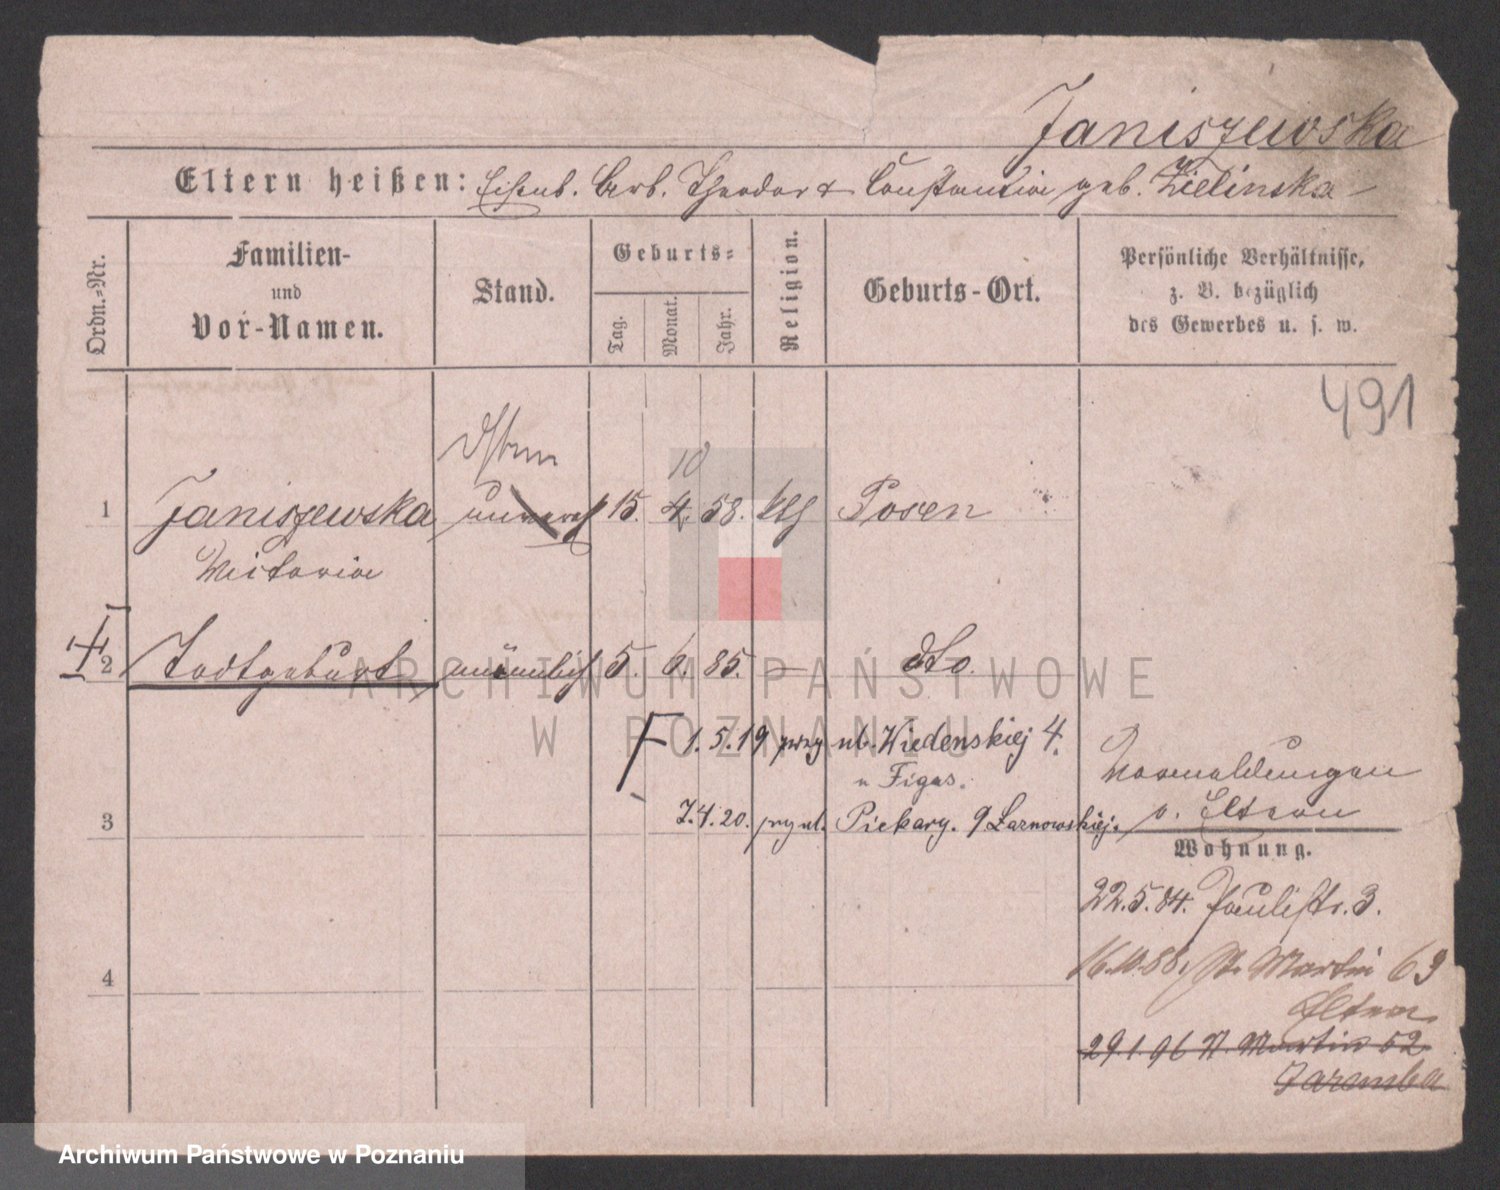 Janiszewska
Eltern heißen: Eisenb. Arb. Theodor & Constantia geb. Zielinska
Ordn.-Nr.
Familien-
und
Vor-Namen.
Stand.
Geburts-
Tag.
Monat.
Jahr.
Religion.
Geburts-Ort.
Persönliche Verhältnisse,
z. B. bezüglich
des Gewerbes u. s. w.
491
10
1 Janiszewska unvereh 15. 4. 58. kth Posen
Victoria
2 Todtgeburt männlich 5. 6. 85. — dto.
1.5.19 przy ul. Wiedenskiej 4.
u Figas.
Vormeldungen
3 7.4.20. przy ul. Piekary. 9 Larnowskiej.
v. Eltern
Wohnung.
22.5.84. Paulistr. 3.
4 16.10.88. St. Martin 63
Eltern
29.1 96 St. Martin 52
Zaremba
ARCHIWUM PAŃSTWOWE
W POZNANIU
Archiwum Państwowe w Poznaniu